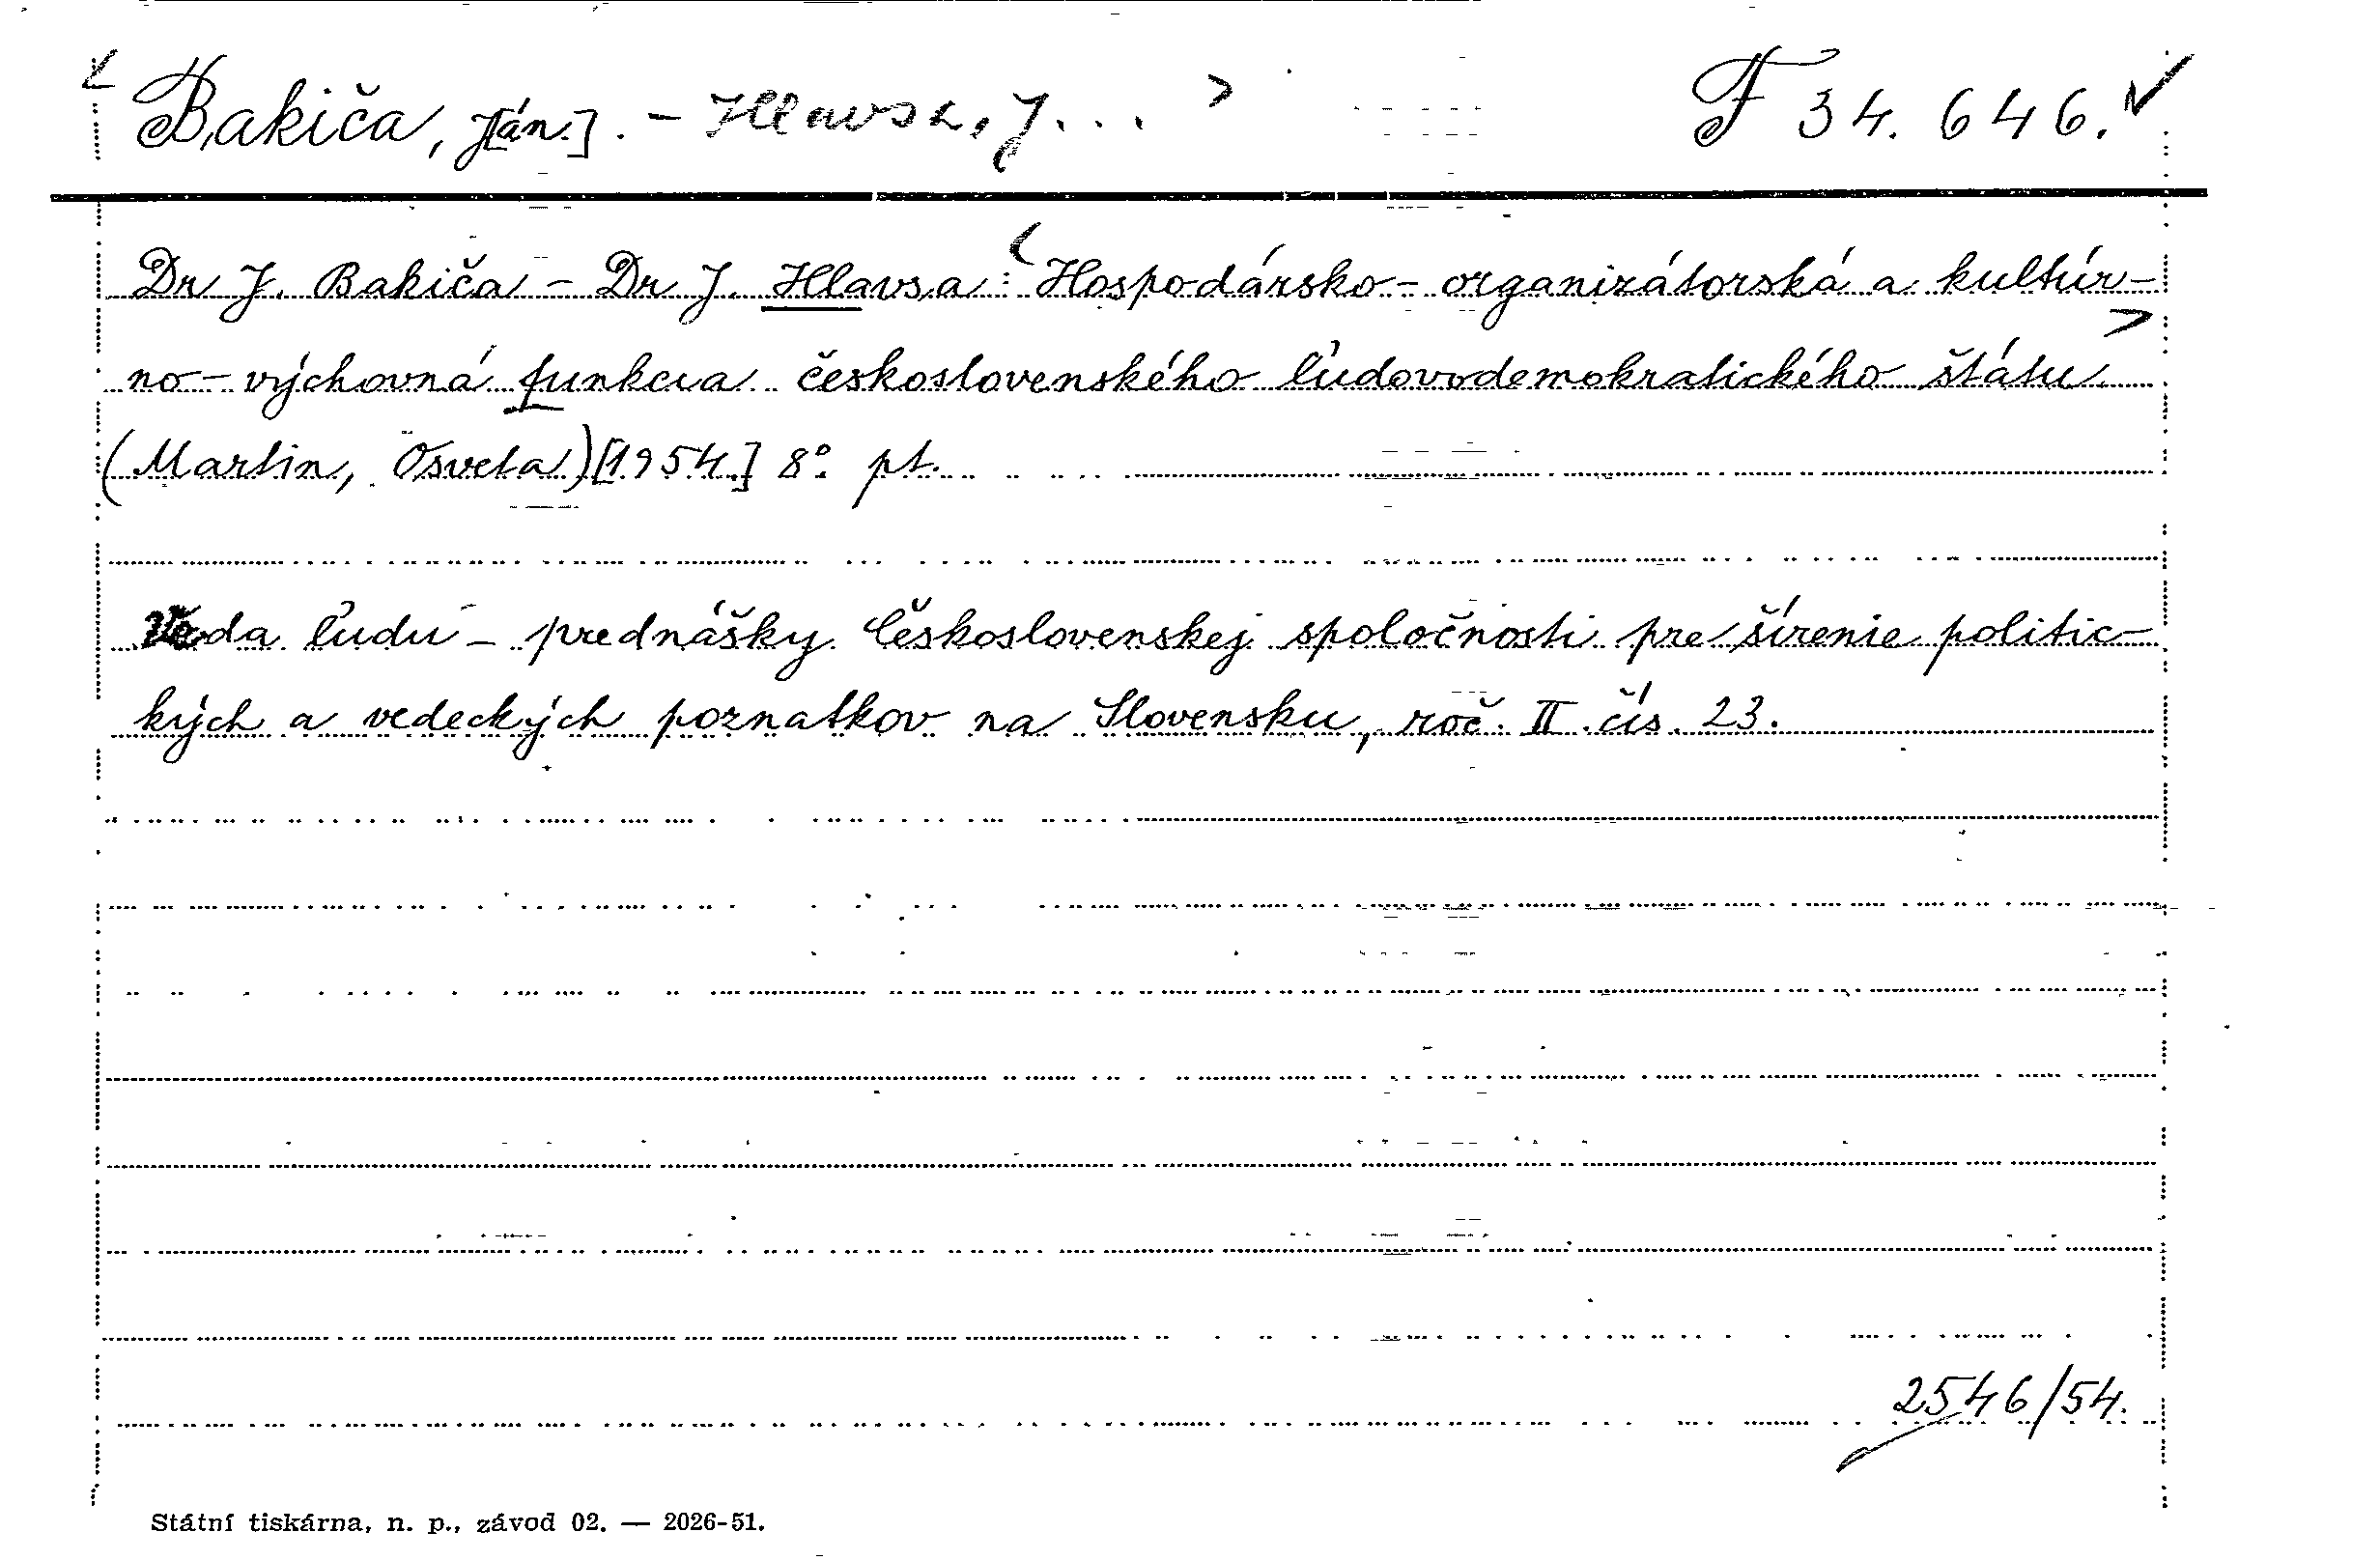 < Bakiča, J[án]. - Hlavsa, J... > F 34.646. ✓
Dr J. Bakiča - Dr J. Hlavsa: <Hospodársko-organizátorská a kultúr-
no-výchovná funkcia československého ľudovodemokratického štátu>
(Martin, Osveta) [1954.] 8°. pt.
Veda ľudu - prednášky Československej spoločnosti pre šírenie politic-
kých a vedeckých poznatkov na Slovensku, roč. II čís. 23.
2546/54.
Státní tiskárna, n. p., závod 02. — 2026-51.